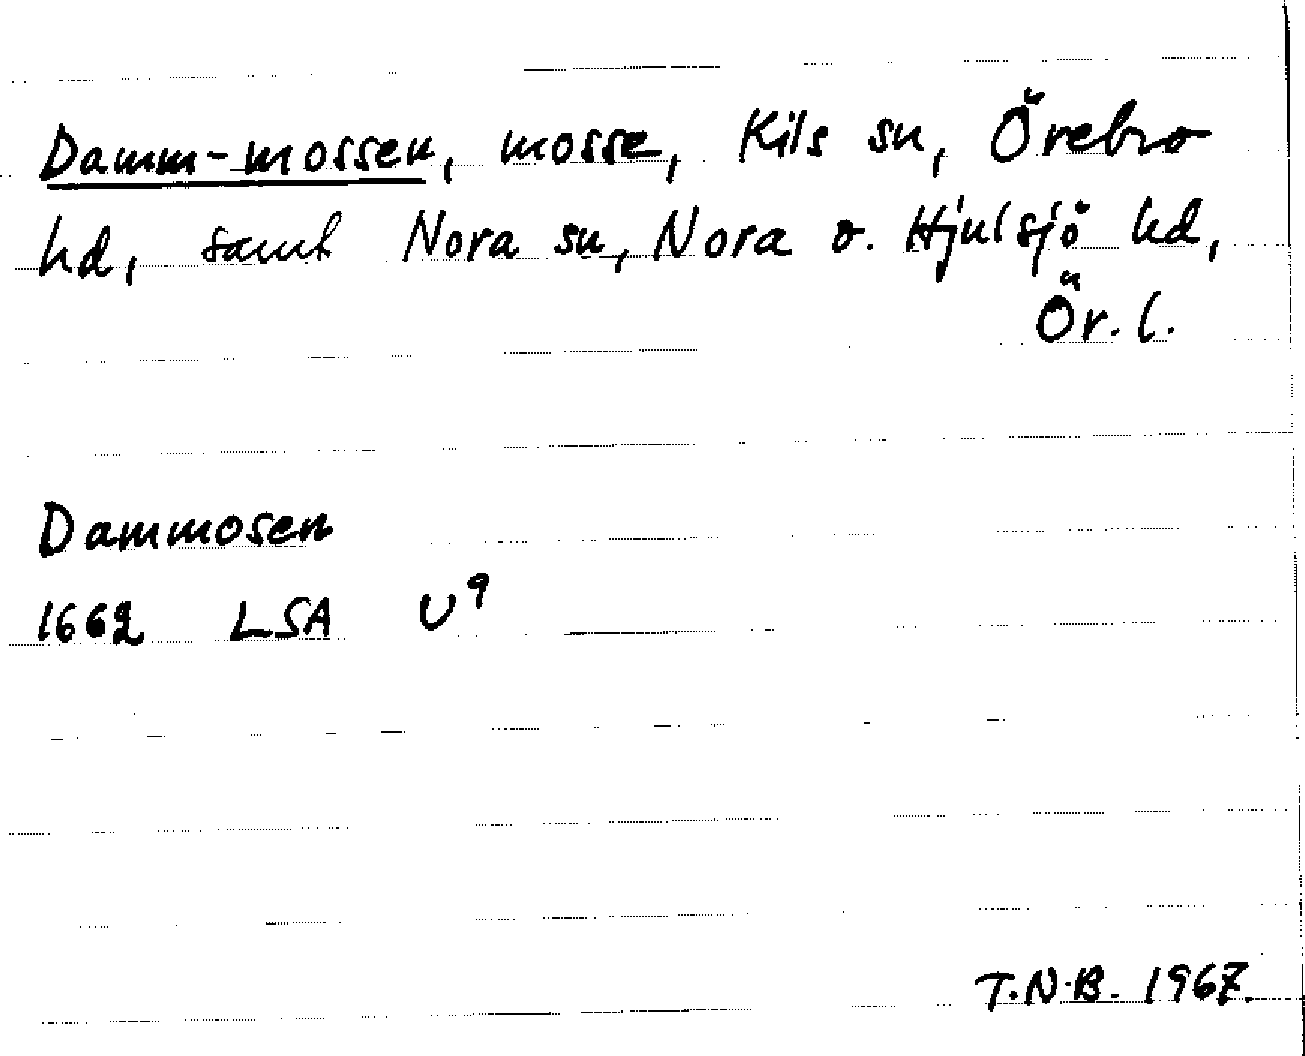 Damm-mossen, mosse, Kils sn, Örebro
hd, samt Nora sn, Nora o. Hjulsjö hd,
Ör. l.
Dammosen
1662 LSA U9
T.N.B. 1967.